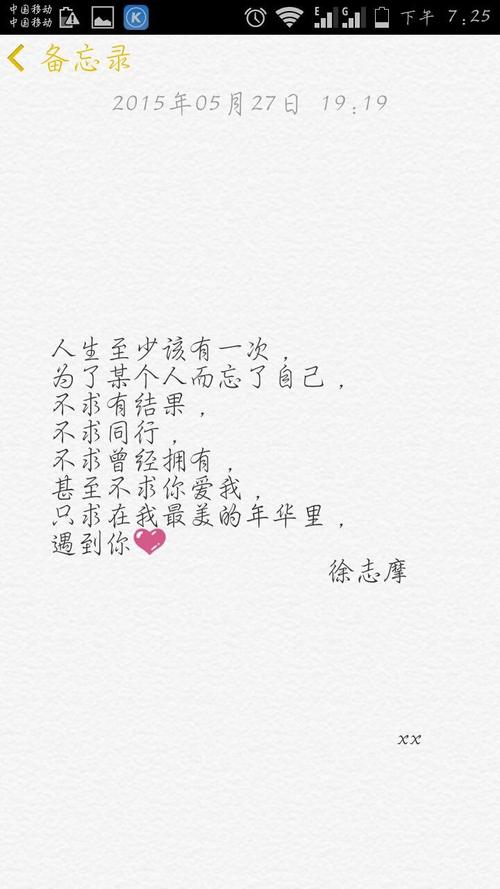 中国移动
中国移动
E
G
下午 7:25
备忘录
2015年05月27日 19:19
人生至少该有一次，
为了某个人而忘了自己，
不求有结果，
不求同行，
不求曾经拥有，
甚至不求你爱我，
只求在我最美的年华里，
遇到你
徐志摩
xx